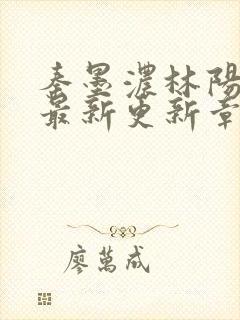 秦墨濃林陽
最新更新章
廖萬成